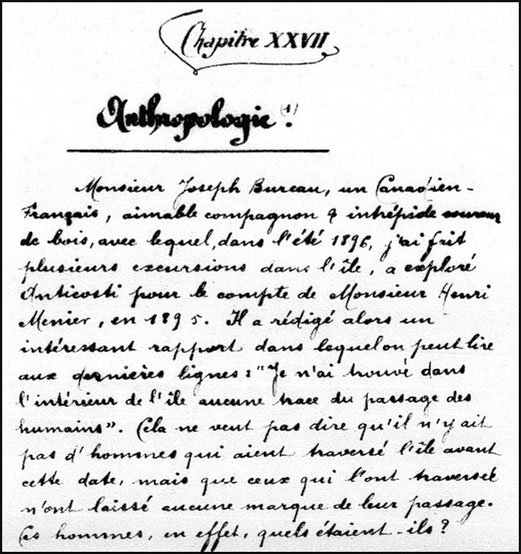 Chapitre XXVII
Anthropologie (1).
Monsieur Joseph Bureau, un Canadien-
Français, aimable compagnon & intrépide coureur
de bois, avec lequel, dans l'été 1896, j'ai fait
plusieurs excursions dans l'île, a exploré
Anticosti pour le compte de Monsieur Henri
Menier, en 1895. Il a rédigé alors un
intéressant rapport dans lequel on peut lire
aux dernières lignes : "Je n'ai trouvé dans
l'intérieur de l'île aucune trace du passage des
humains". Cela ne veut pas dire qu'il n'y ait
pas d'hommes qui aient traversé l'île avant
cette date, mais que ceux qui l'ont traversée
n'ont laissé aucune marque de leur passage.
Ces hommes, en effet, quels étaient-ils ?